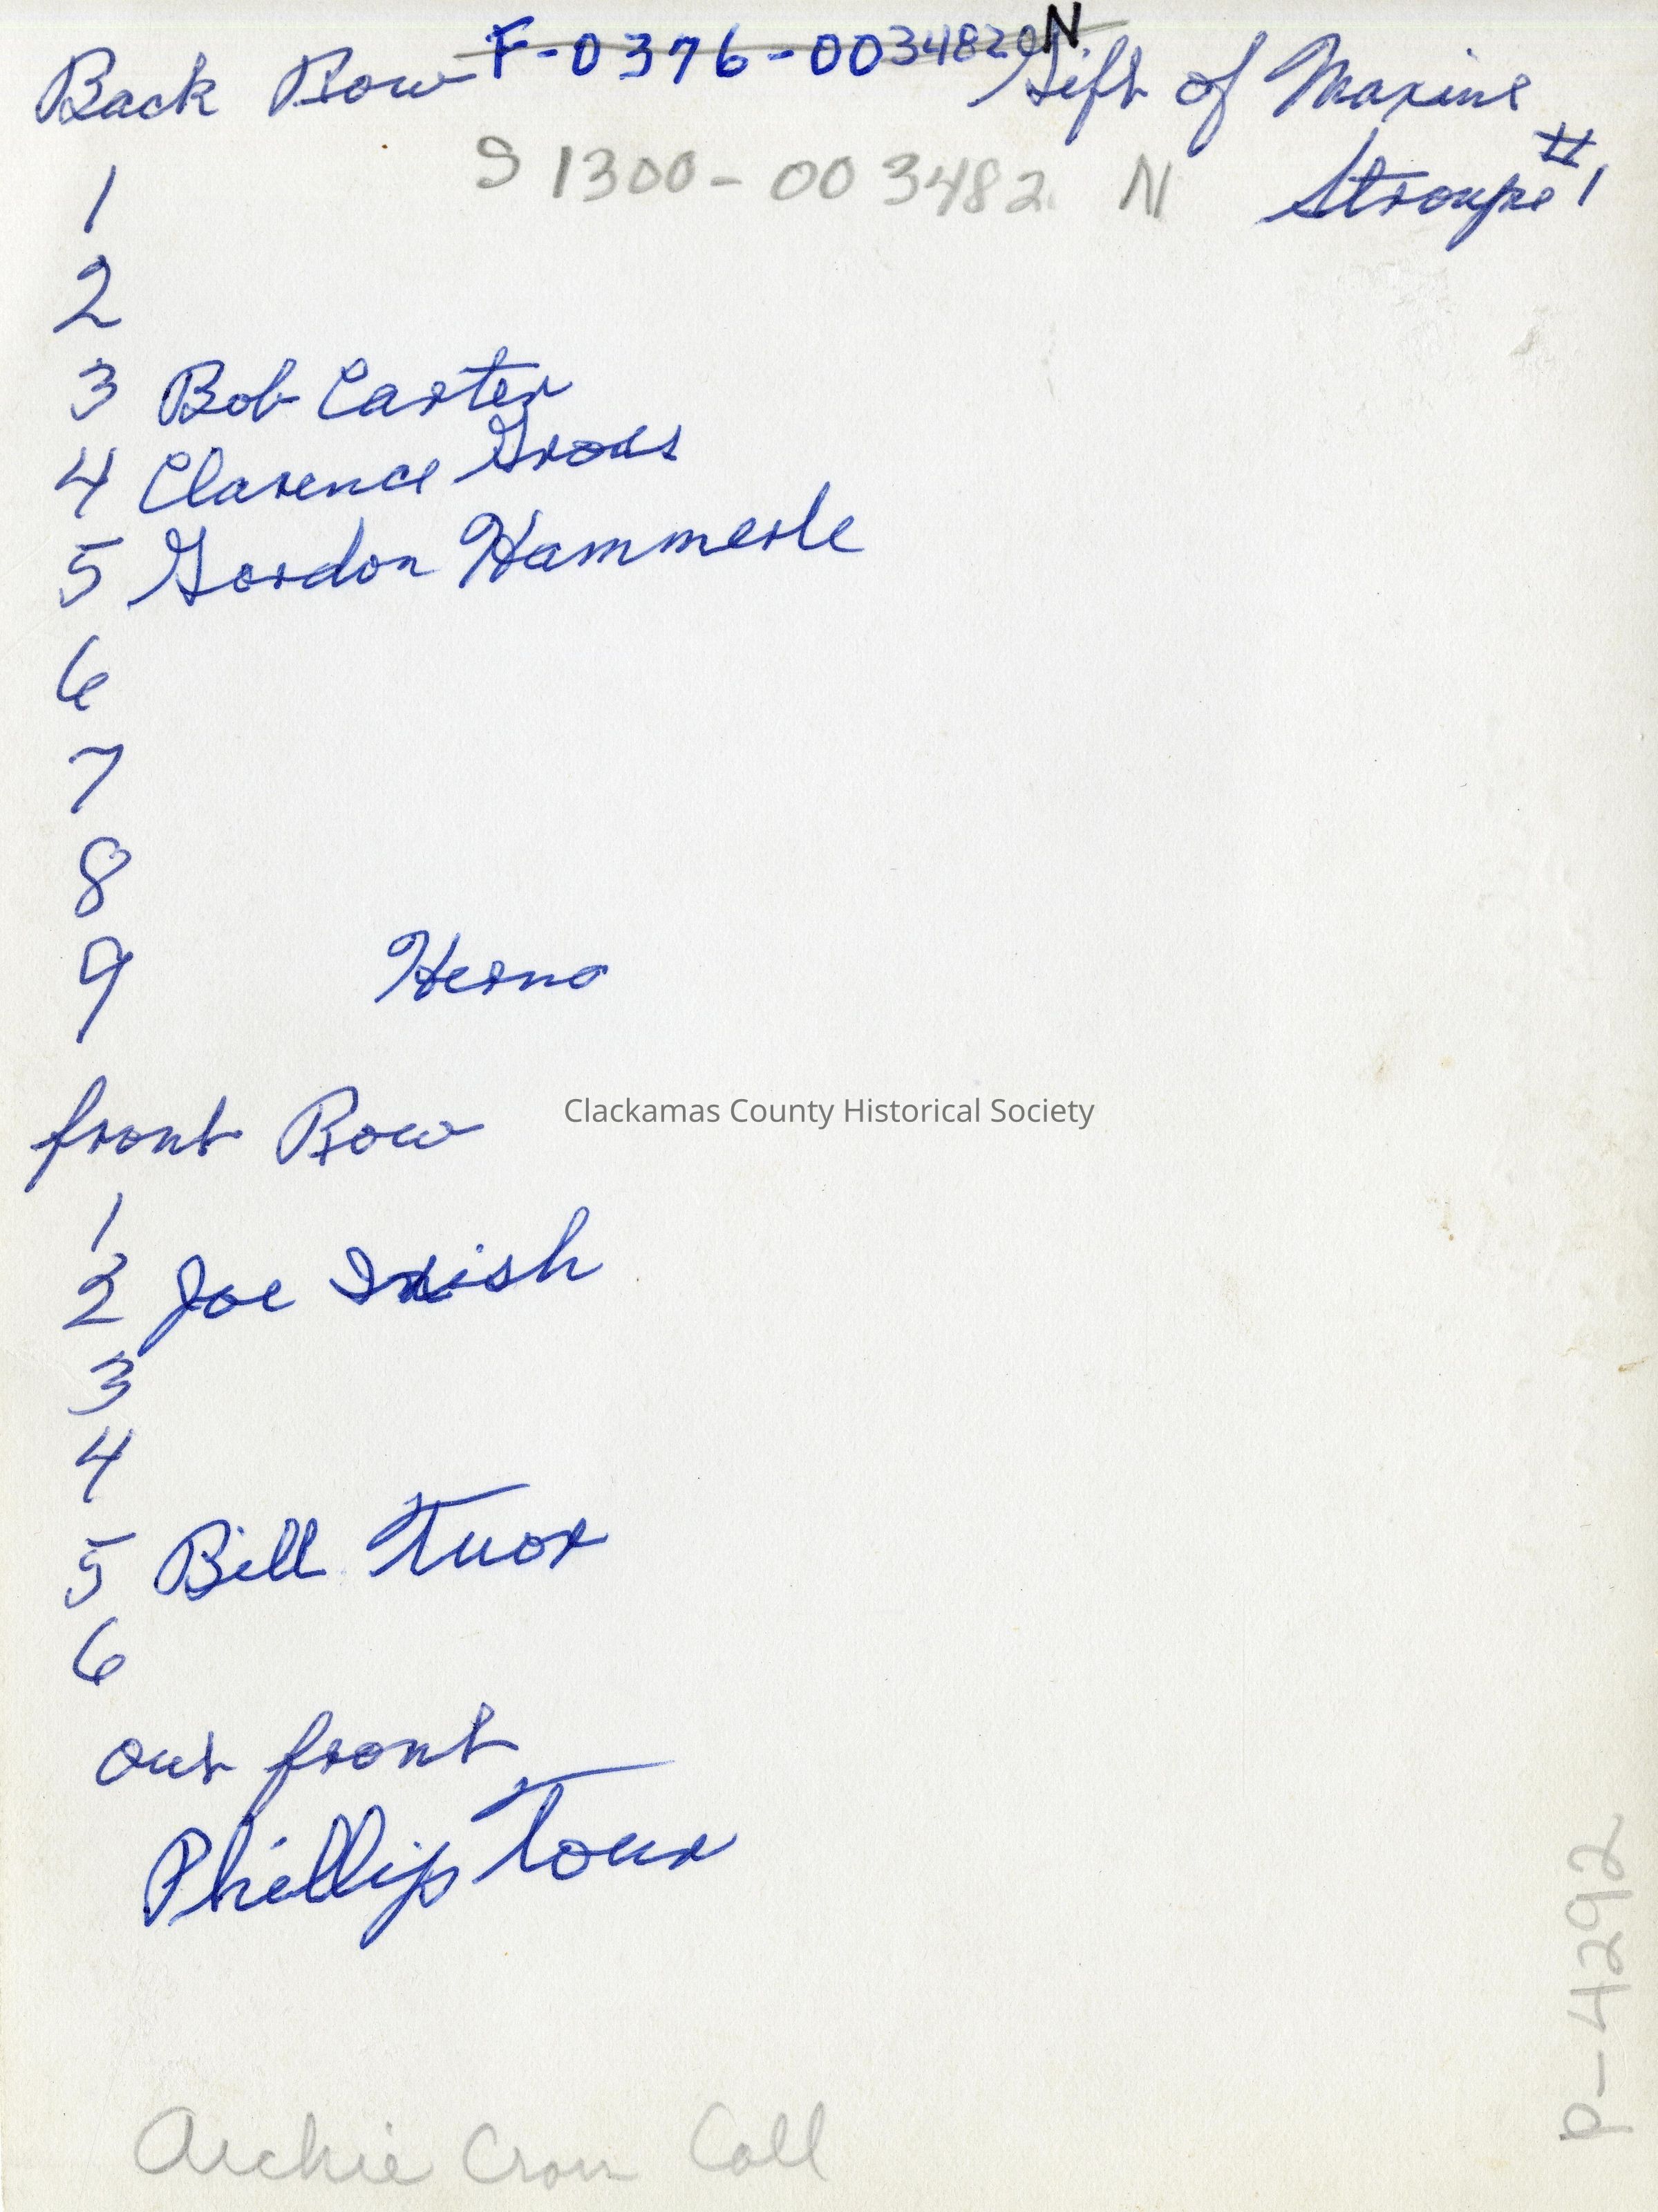 F-0376-0034820N
Back Row
Gift of Maxine
Stroupe #1
S 1300-003482 N
1
2
3 Bob Carter
4 Clarence Gross
5 Gordon Hammerle
6
7
8
9 Herno
Clackamas County Historical Society
front Row
1
2 Joe
3
4
5 Bill
6
out front
Phillip Tour
P-4292
Archie Crow Coll